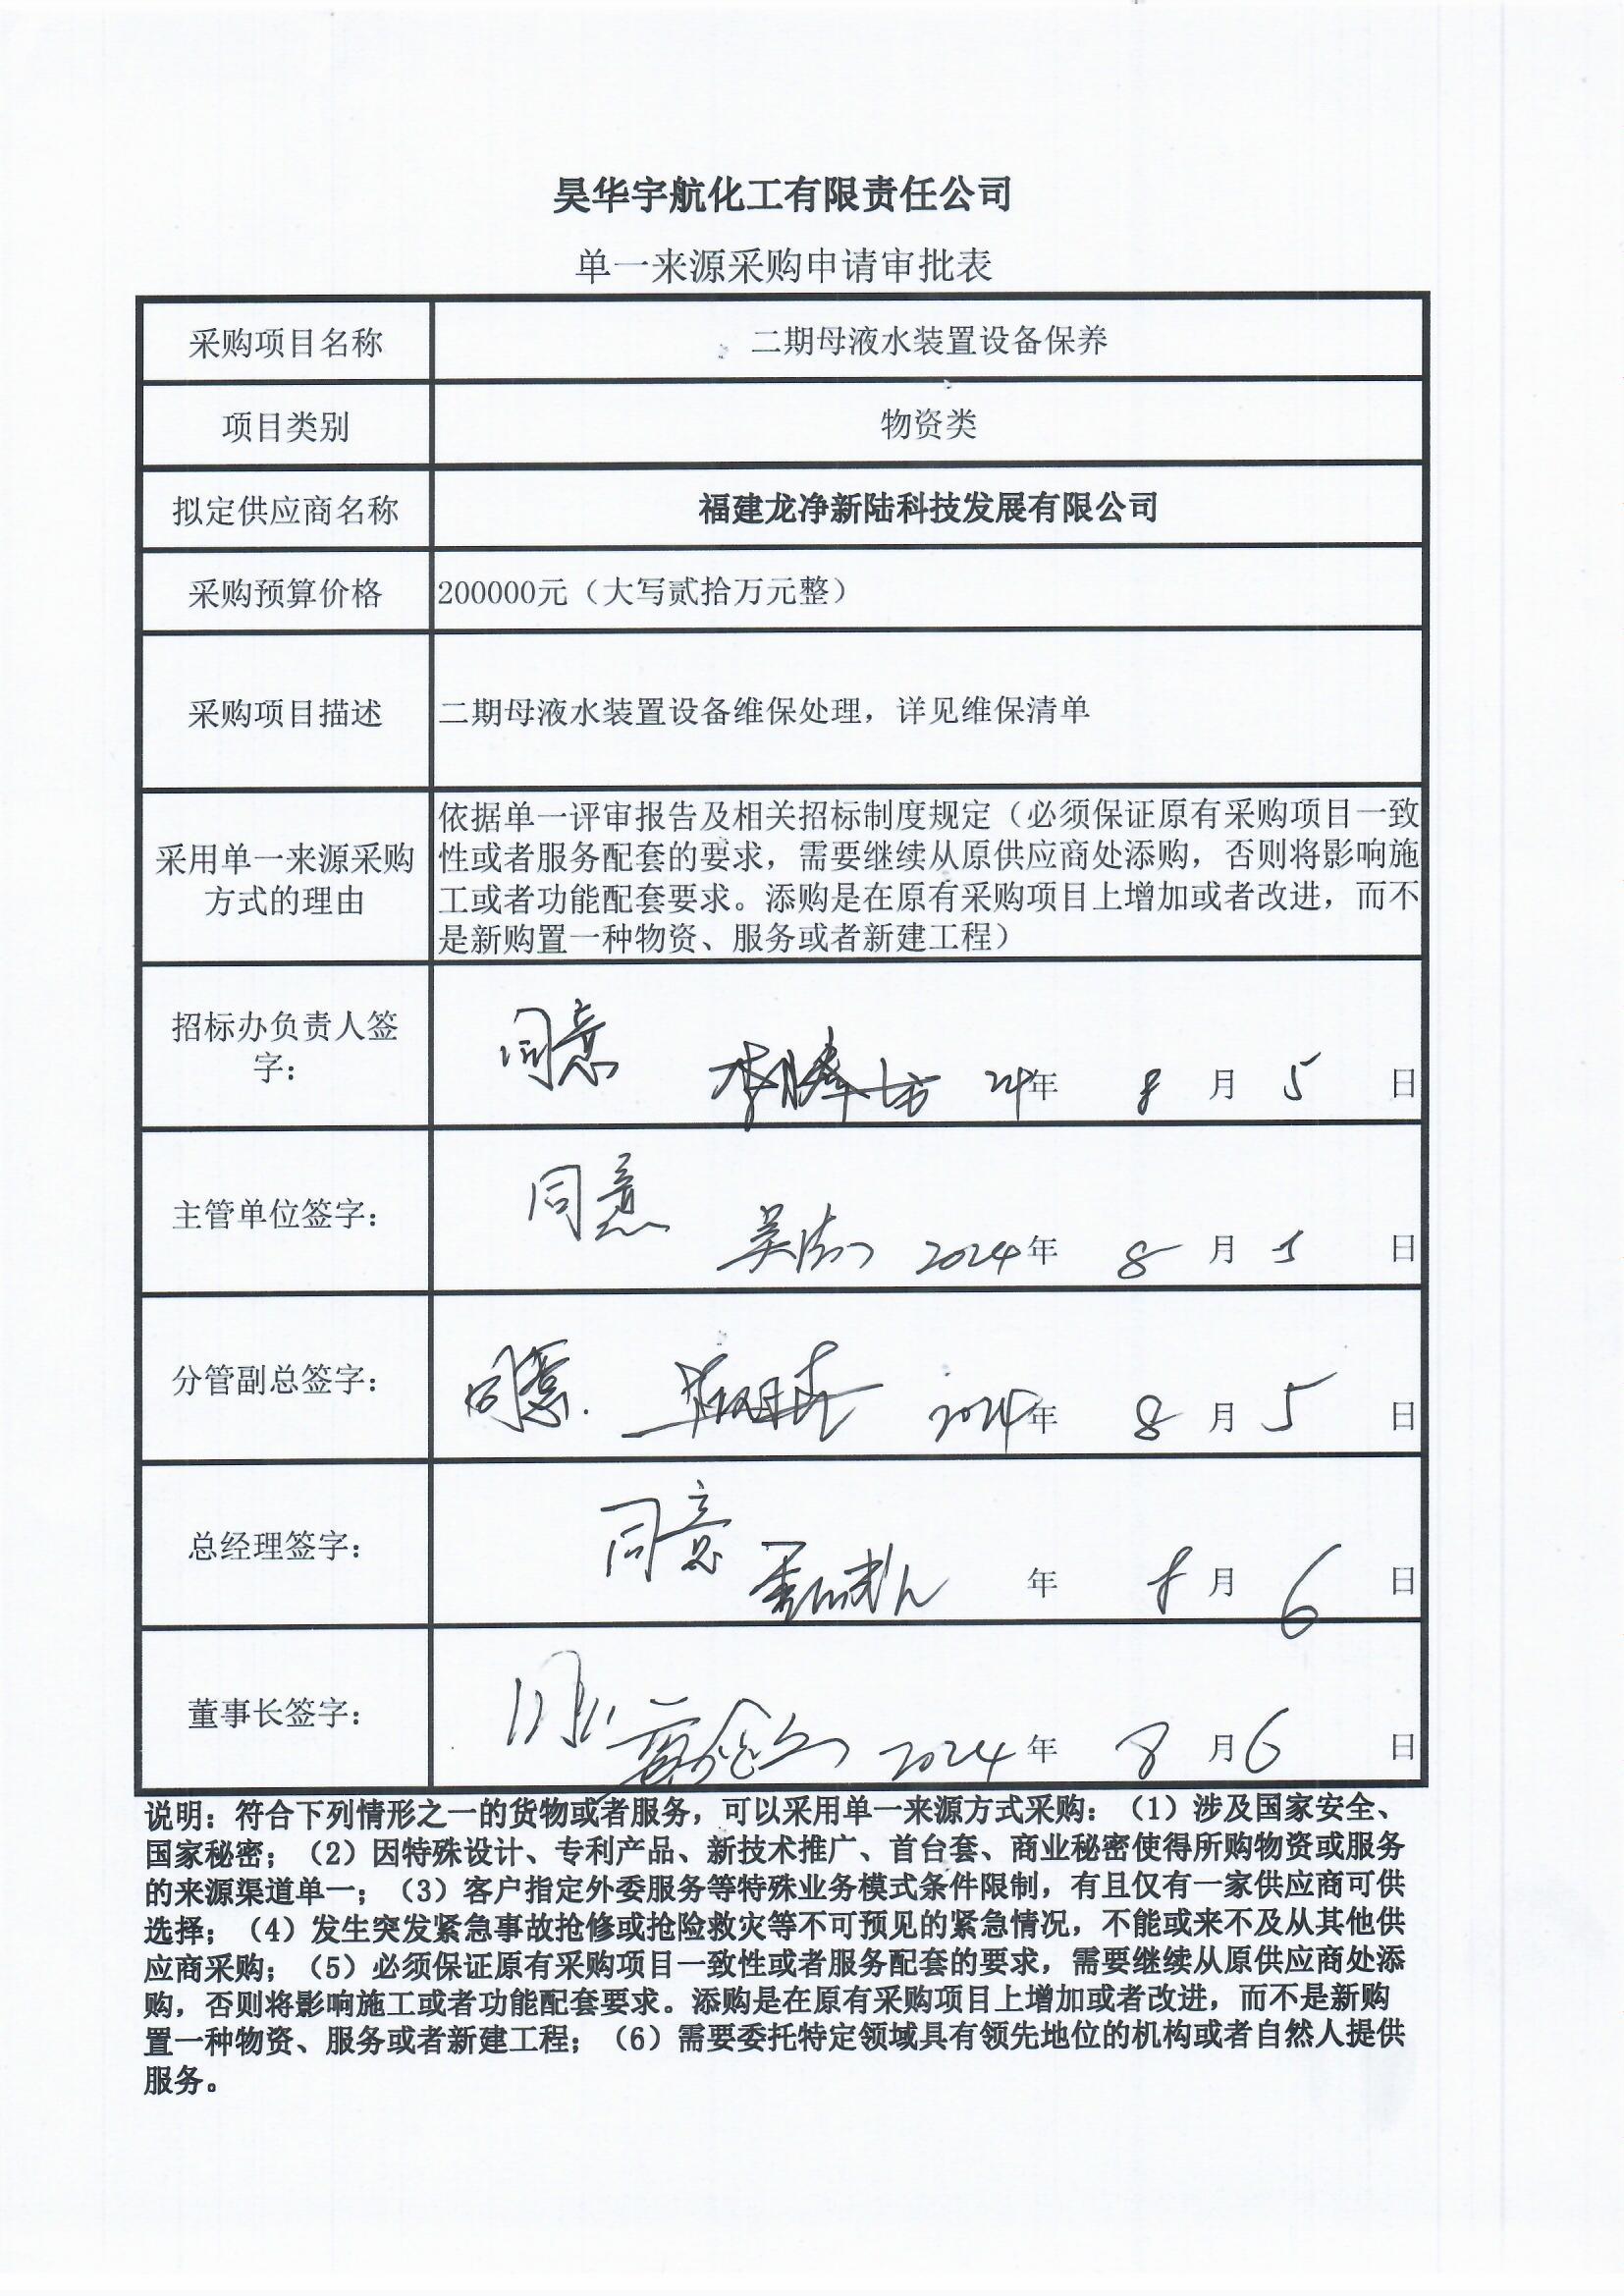 昊华宇航化工有限责任公司
单一来源采购申请审批表
采购项目名称
二期母液水装置设备保养
项目类别
物资类
拟定供应商名称
福建龙净新陆科技发展有限公司
采购预算价格
200000元（大写贰拾万元整）
采购项目描述
二期母液水装置设备维保处理，详见维保清单
采用单一来源采购
方式的理由
依据单一评审报告及相关招标制度规定（必须保证原有采购项目一致
性或者服务配套的要求，需要继续从原供应商处添购，否则将影响施
工或者功能配套要求。添购是在原有采购项目上增加或者改进，而不
是新购置一种物资、服务或者新建工程）
招标办负责人签
字：
同意
24年 8 月 5 日
主管单位签字：
同意
2024年 8 月 5 日
分管副总签字：
同意.
2024年 8 月 5 日
总经理签字：
同意
年 8 月 6 日
董事长签字：
2024年 8 月 6 日
说明：符合下列情形之一的货物或者服务，可以采用单一来源方式采购：（1）涉及国家安全、
国家秘密；（2）因特殊设计、专利产品、新技术推广、首台套、商业秘密使得所购物资或服务
的来源渠道单一；（3）客户指定外委服务等特殊业务模式条件限制，有且仅有一家供应商可供
选择；（4）发生突发紧急事故抢修或抢险救灾等不可预见的紧急情况，不能或来不及从其他供
应商采购；（5）必须保证原有采购项目一致性或者服务配套的要求，需要继续从原供应商处添
购，否则将影响施工或者功能配套要求。添购是在原有采购项目上增加或者改进，而不是新购
置一种物资、服务或者新建工程；（6）需要委托特定领域具有领先地位的机构或者自然人提供
服务。